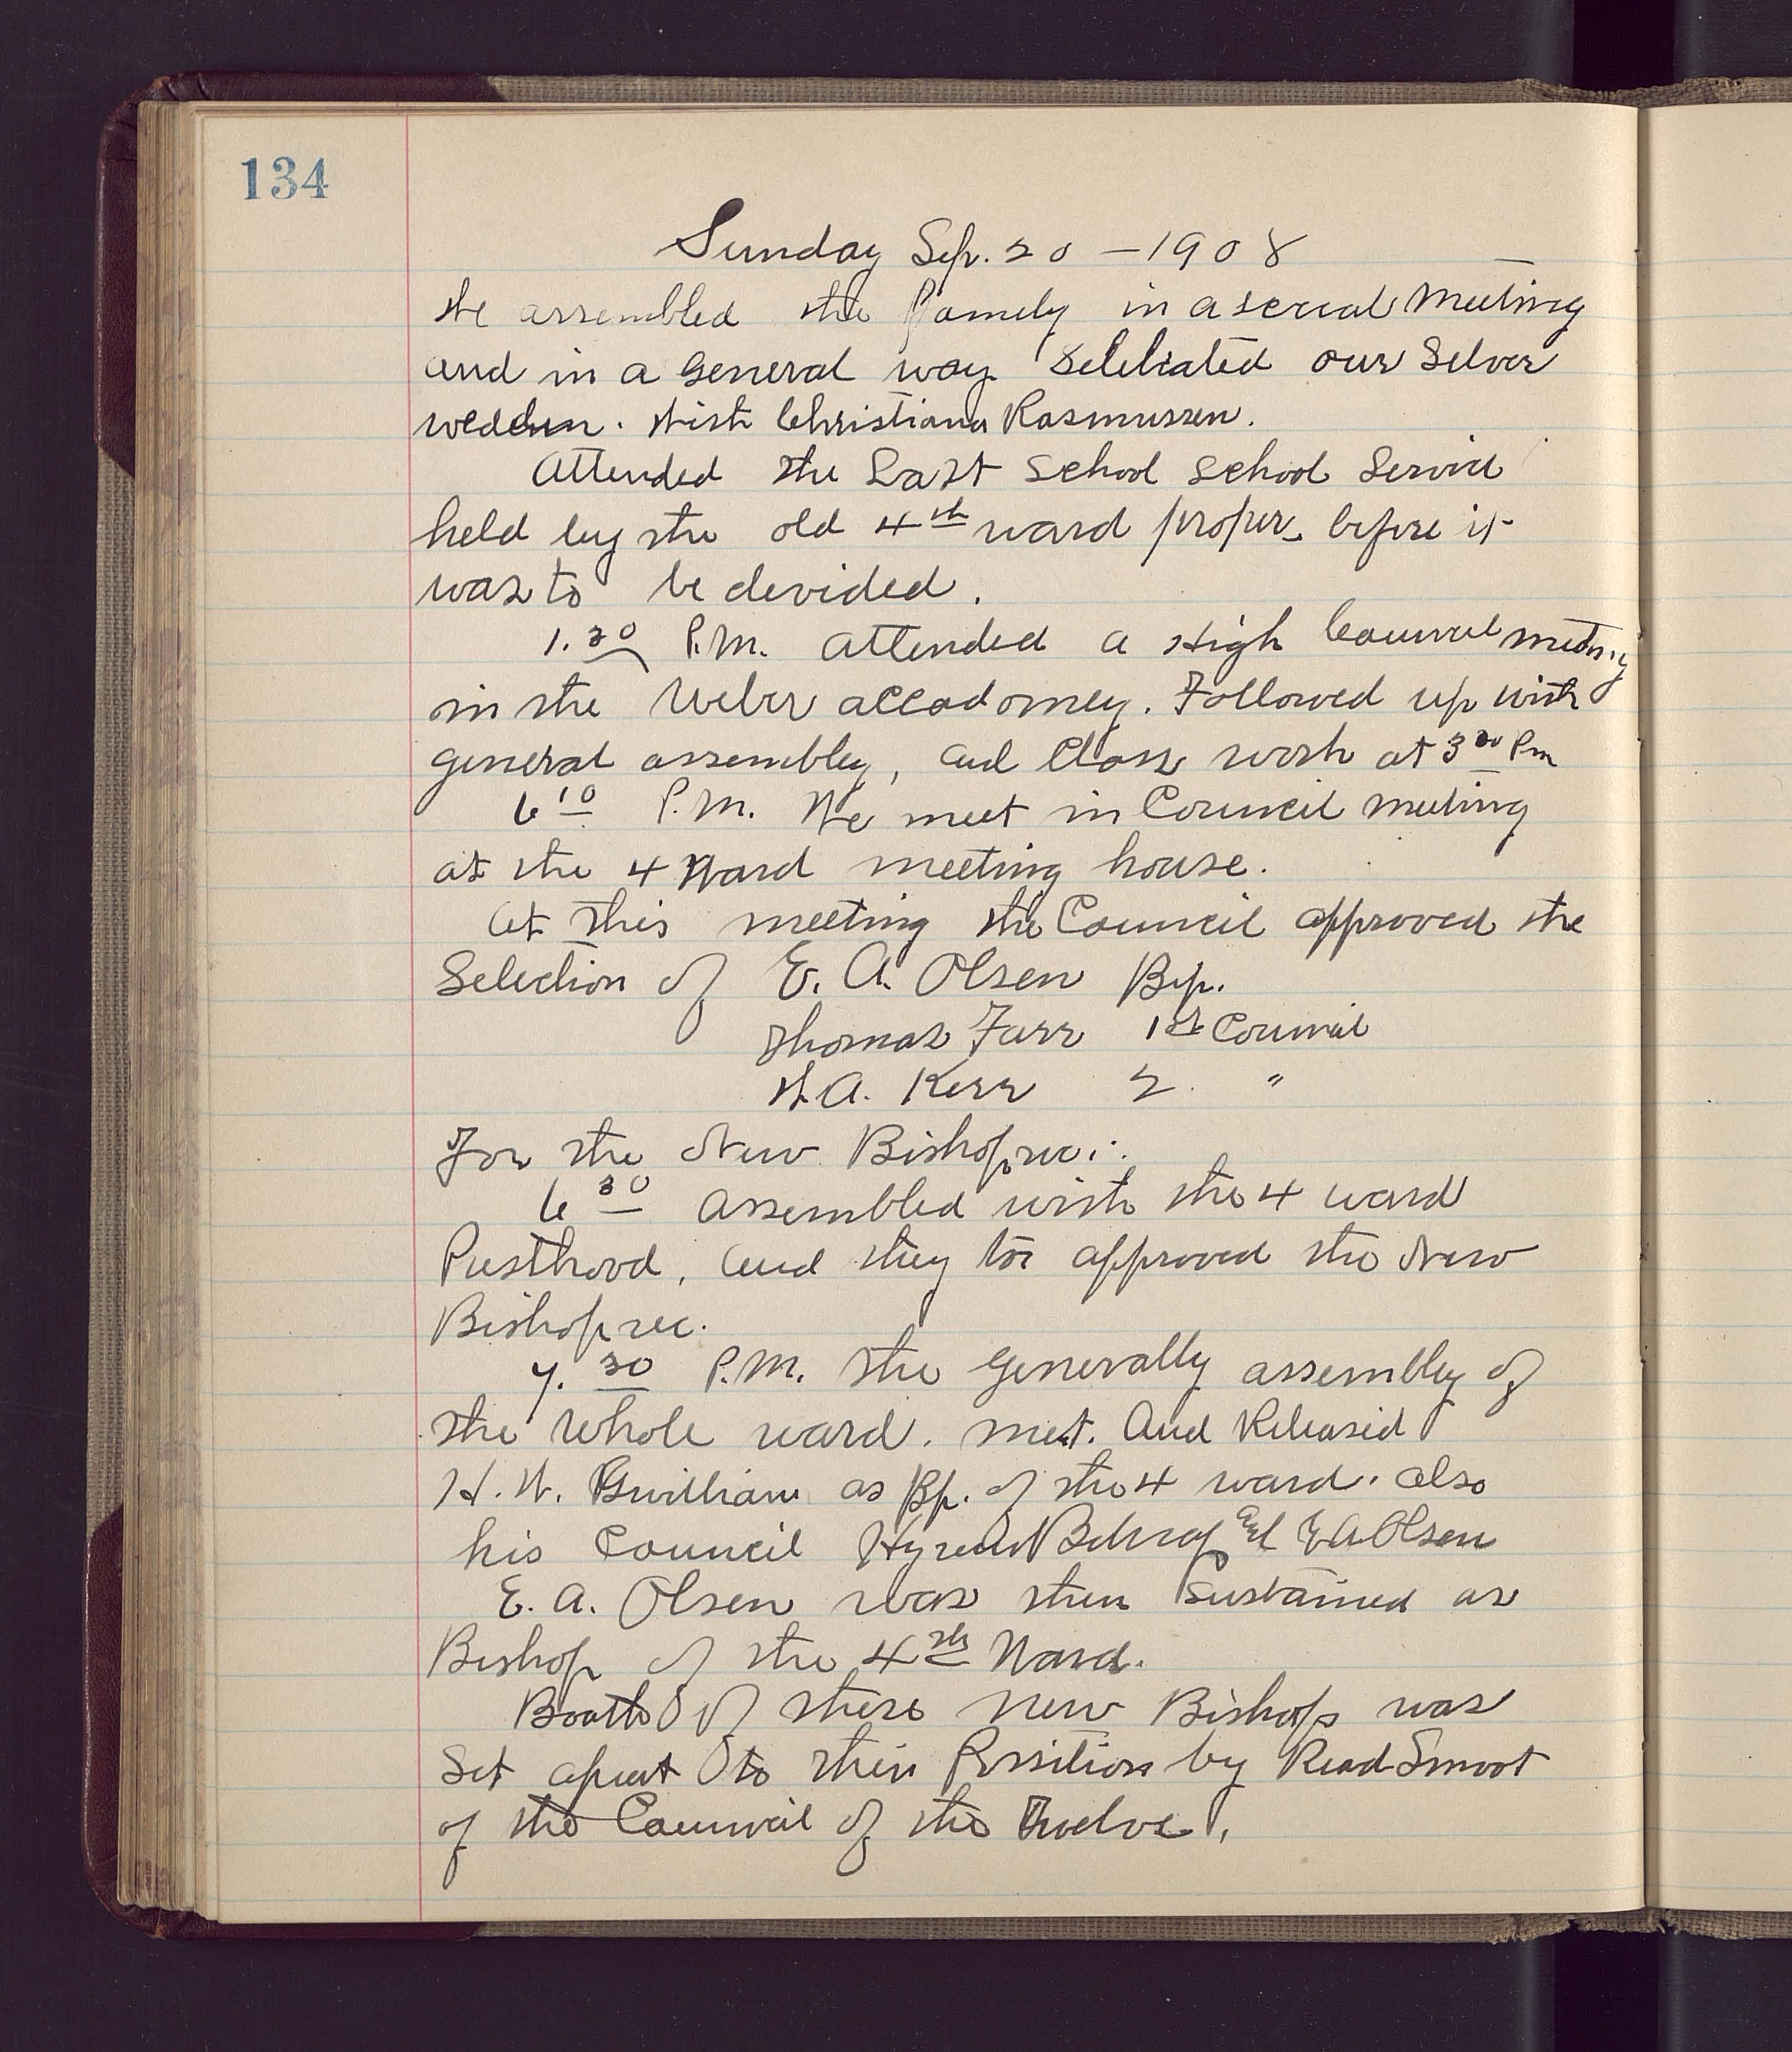 134
Sunday Sep. 20 - 1908
We assembled the Famely in a sercal Meeting
and in a General way Selebrated our Selver
wedden. With Christiana Rasmussen.
Attended the Last School School Servic
held by the old 4th ward proper before it
was to be devided.
1.30 P.M. attended a High Councel meeting
in the Weber accadomey. Followed up with
general assembley, and Class work at 3 30 Pm
6 10 P.M. We meet in Council meeting
at the 4 Ward meeting house.
At this meeting the Council approved the
Selection of E. A. Olsen Bip.
Thomas Farr 1st Council
W. A. Kerr 2. "
For the New Bishopric.
6 30 assembled with the 4 ward
Presthood, and they to approved the New
Bishoprec.
7.30 P.M. the Generally assembley of
the whole ward. met. And Released
H. W. Gwilliam as Bp. of the 4 ward. also
his Council Hyrum Belnap and E A Olsen
E. A. Olsen was then Sustained as
Bishop of the 4th Ward.
Boath of these new Bishops was
Set apart to their Possition by Read Smoot
of the Council of the Twelve.